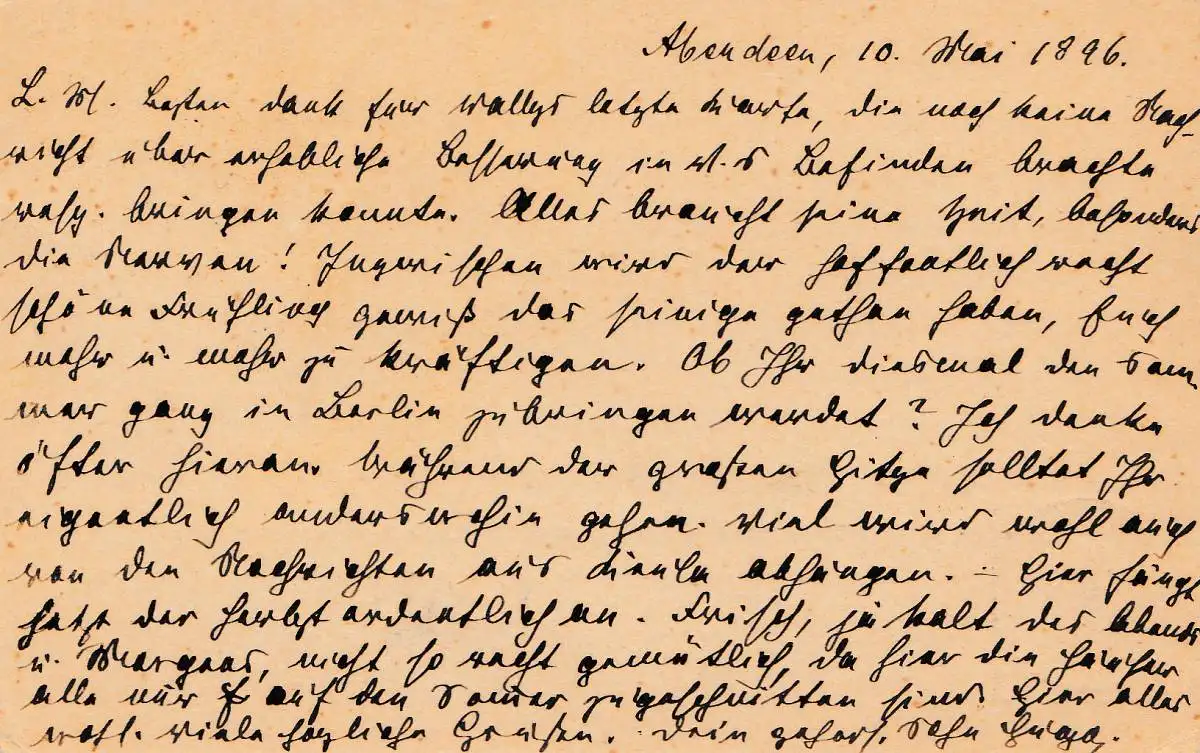 Aberdeen, 10. Mai 1896.
L. M. Besten dank für Wallys letzte Karte, die noch keine Nach-
richt über erhebliche Besserung in V.s Befinden brachte
resp. bringen konnte. Alles braucht seine Zeit, besonders
die Nerven! Inzwischen wird der hoffentlich recht
schöne Frühling gewiß das seinige gethan haben, Euch
mehr u. mehr zu kräftigen. Ob Ihr diesmal den Som-
mer ganz in Berlin zubringen werdet? Ich denke
öfter hieran. Während der großen Hitze solltet Ihr
eigentlich anderswohin gehen. Viel wird wohl auch
von den Nachrichten aus abhängen. – Hier fängt
jetzt der Herbst ordentlich an. Frisch, ja kalt des Abends
u. Morgens, nicht so recht gemütlich, da hier die Häuser
alle nur auf den Sommer zugeschnitten sind. Hier alles
wohl. Viele herzliche Grüßen. Dein gehors. Sohn Hugo.